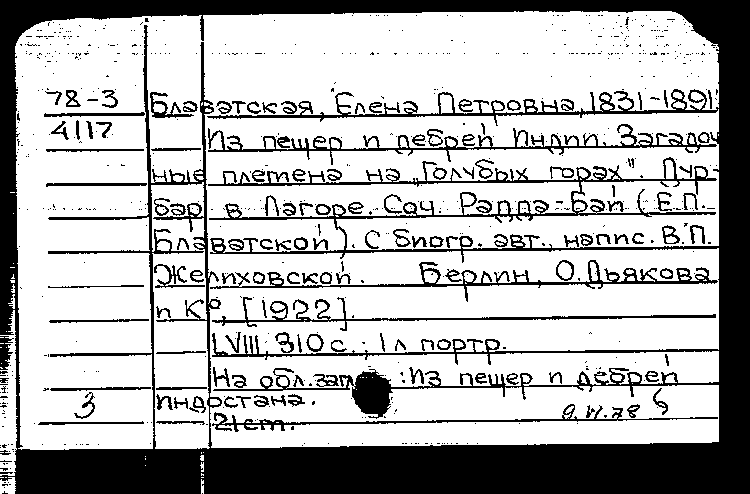 78-3 Блаватская, Елена Петровна, 1831-1891.
4117 Из пещер и дебрей Индии. Загадоч
ные племена на „Голубых горах". Дур-
бар в Лагоре. Соч. Радда-Бай (Е.П.
Блаватской). С биогр. авт., напис. В.П.
Желиховской. Берлин, О.Дьякова
и К°, [1922].
LVIII, 310 с.; 1 л портр.
На обл. загл : Из пещер и дебрей
3 Индостана.
21 cm. 9.VI.78